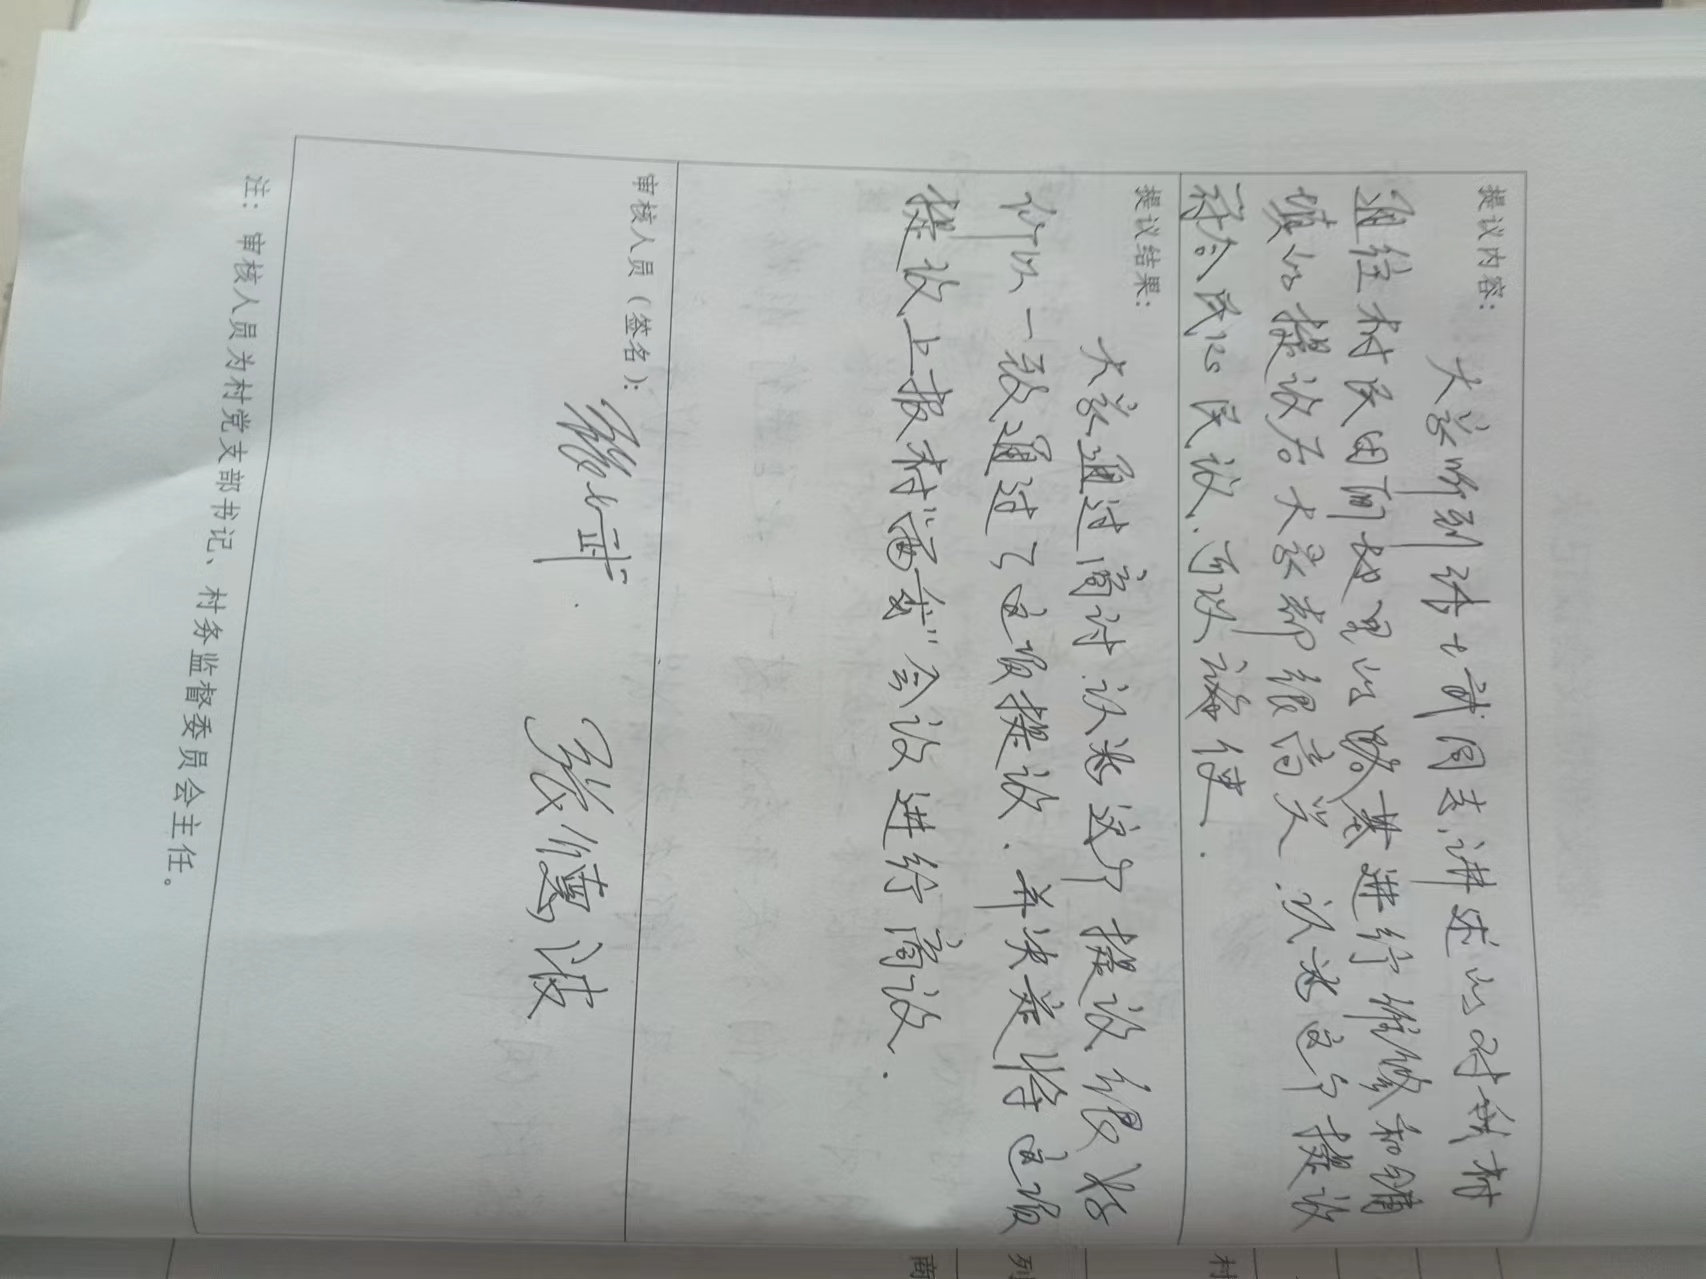 提议内容：
大家听到张七武同志讲述的对新村
通往村民田间地里的路基进行维修和铺
填的提议后大家都很高兴，认为这个提议
符合民心民议，可以議使.
提议结果：
大家通过商讨，认为这个提议很好
所以一致通过了这项提议，并决定将这项
提议上报村“两委”会议进行商议.
审核人员（签名）：
张七武.
张德波
注：审核人员为村党支部书记、村务监督委员会主任。
商
列
村